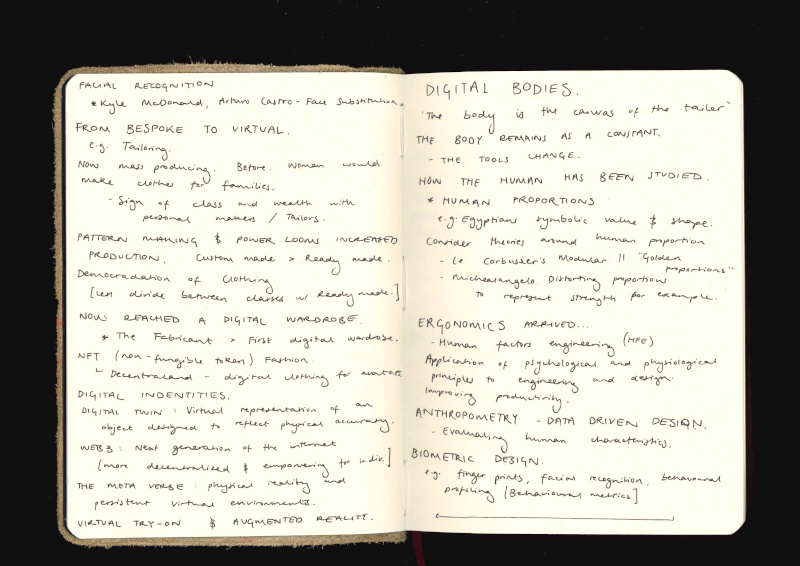 FACIAL RECOGNITION
* Kyle McDonald, Arturo Castro - Face Substitution.
FROM BESPOKE TO VIRTUAL.
e.g. Tailoring.
Now mass producing. Before. Woman would
make clothes for families.
- Sign of class and wealth with
personal makers / Tailors.
PATTERN MAKING & POWER LOOMS INCREASED
PRODUCTION. Custom made > Ready made.
Democradation of Clothing
[Less divide between classes w/ Ready made.]
NOW REACHED A DIGITAL WARDROBE.
* The Fabricant > First digital wardrobe.
NFT (non-fungible token) Fashion.
└ Decentraland - digital clothing for avatars
DIGITAL INDENTITIES.
DIGITAL TWIN : Virtual representation of an
object designed to reflect physical accuracy.
WEB3 : Next generation of the internet
[more decentralized & empowering for indiv.]
THE META VERBE : physical reality and
persistent virtual environments.
VIRTUAL TRY-ON & AUGMENTED REALITY.
DIGITAL BODIES.
"The body is the canvas of the tailer"
THE BODY REMAINS AS A CONSTANT.
- THE TOOLS CHANGE.
HOW THE HUMAN HAS BEEN STUDIED.
* HUMAN PROPORTIONS
e.g. Egyptians symbolic value & shape.
Consider theories around human proportion
- Le Corbussier's Modular II "Golden
proportions"
- Michealangelo. Distorting proportions
to represent strength for example.
ERGONOMICS ARRIVED...
- Human factors engineering (HFE)
Application of psychological and physiological
principles to engineering and design.
Improving productivity.
ANTHROPOMETRY - DATA DRIVEN DESIGN.
- Evaluating human characteristics.
BIOMETRIC DESIGN.
e.g. finger prints, facial recognition, behavoural
profiling [Behavioural metrics]